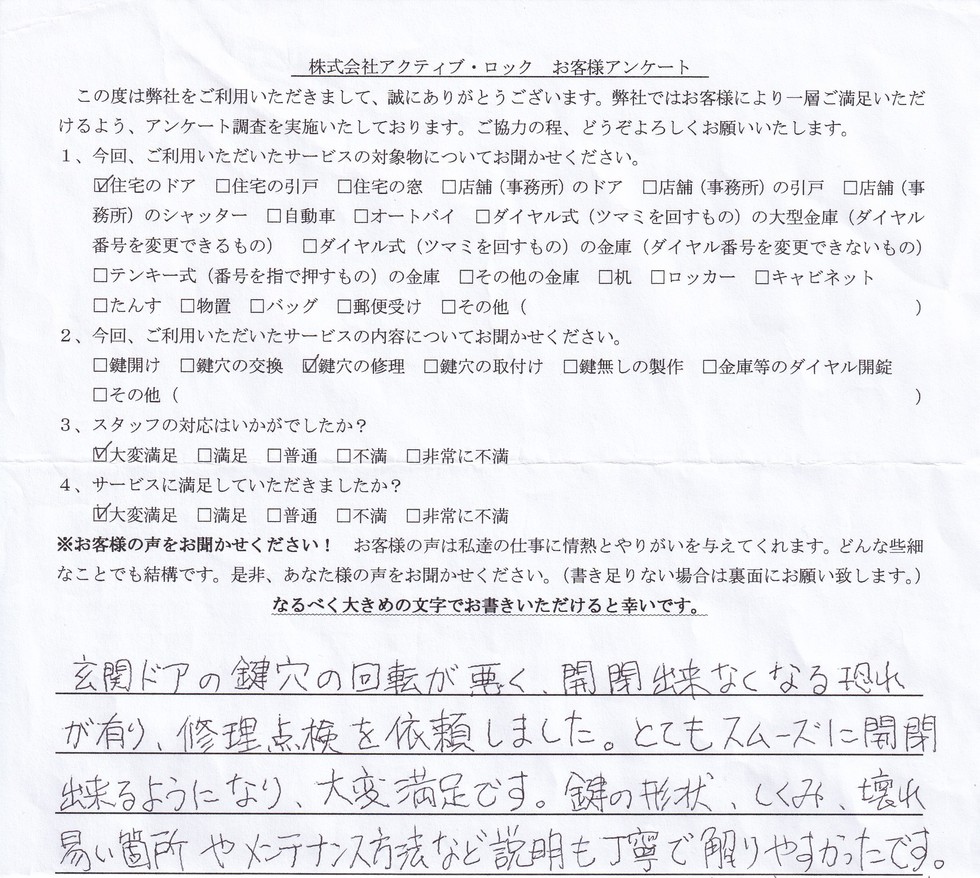 株式会社アクティブ・ロック　お客様アンケート
この度は弊社をご利用いただきまして、誠にありがとうございます。弊社ではお客様により一層ご満足いただ
けるよう、アンケート調査を実施いたしております。ご協力の程、どうぞよろしくお願いいたします。
１、今回、ご利用いただいたサービスの対象物についてお聞かせください。
☑住宅のドア　□住宅の引戸　□住宅の窓　□店舗（事務所）のドア　□店舗（事務所）の引戸　□店舗（事
務所）のシャッター　□自動車　□オートバイ　□ダイヤル式（ツマミを回すもの）の大型金庫（ダイヤル
番号を変更できるもの）　□ダイヤル式（ツマミを回すもの）の金庫（ダイヤル番号を変更できないもの）
□テンキー式（番号を指で押すもの）の金庫　□その他の金庫　□机　□ロッカー　□キャビネット
□たんす　□物置　□バッグ　□郵便受け　□その他（　　　　　　　　　　　　　　　　　　　　　　　）
２、今回、ご利用いただいたサービスの内容についてお聞かせください。
□鍵開け　□鍵穴の交換　☑鍵穴の修理　□鍵穴の取付け　□鍵無しの製作　□金庫等のダイヤル開錠
□その他（　　　　　　　　　　　　　　　　　　　　　　　　　　　　　　　　　　　　　　　　　　　）
３、スタッフの対応はいかがでしたか？
☑大変満足　□満足　□普通　□不満　□非常に不満
４、サービスに満足していただきましたか？
☑大変満足　□満足　□普通　□不満　□非常に不満
※お客様の声をお聞かせください！　お客様の声は私達の仕事に情熱とやりがいを与えてくれます。どんな些細
なことでも結構です。是非、あなた様の声をお聞かせください。（書き足りない場合は裏面にお願い致します。）
なるべく大きめの文字でお書きいただけると幸いです。
玄関ドアの鍵穴の回転が悪く、開閉出来なくなる恐れ
が有り、修理点検を依頼しました。とてもスムーズに開閉
出来るようになり、大変満足です。鍵の形状、しくみ、壊れ
易い箇所やメンテナンス方法など説明も丁寧で解りやすかったです。